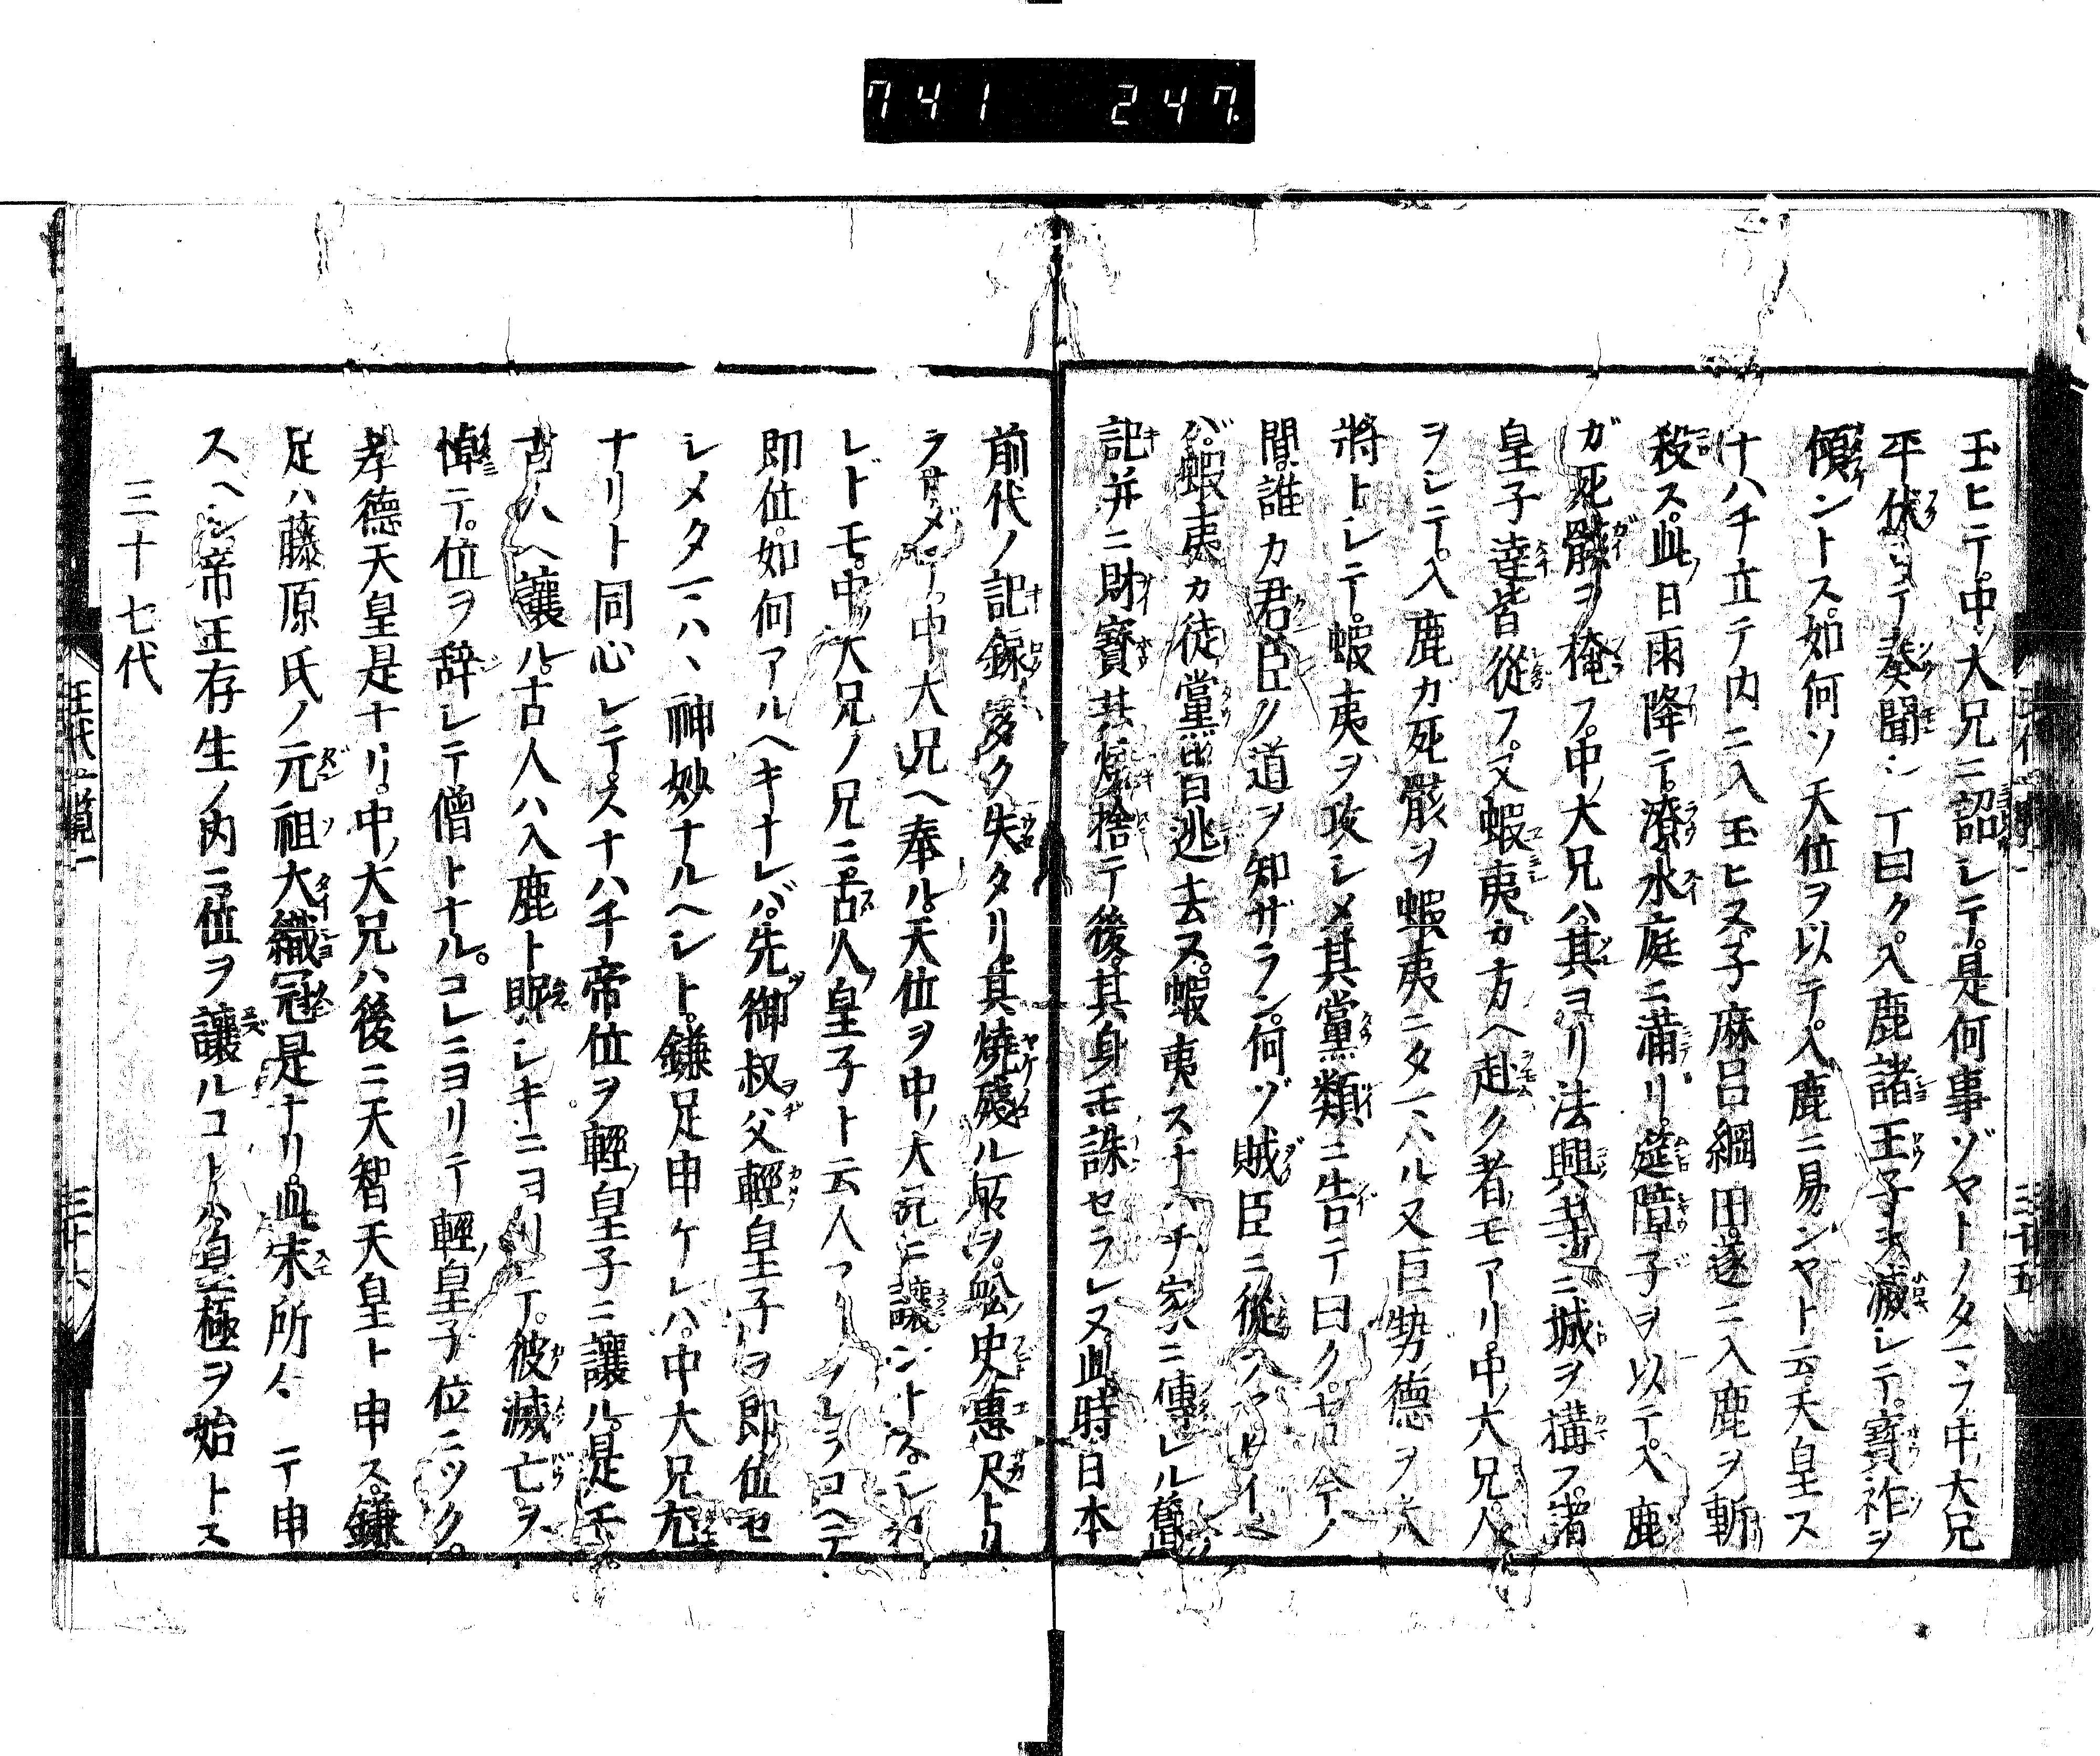 741 247
玉ヒテ。中ノ大兄ニ詔シテ。是何事ゾヤトノタマフ。中ノ大兄
平伏シテ奏聞シテ曰ク。入鹿諸王子ヲ滅シテ。寶祚ヲ
傾ントス。如何ソ天位ヲ以テ。入鹿ニ易ンヤト云。天皇ス
ナハチ立テ内ニ入玉ヒヌ。子麻呂綱田。遂ニ入鹿ヲ斬
殺ス。此ノ日雨降テ。潦水庭ニ滿リ。莚障子ヲ以テ。入鹿
ガ死骸ヲ掩フ。中ノ大兄ハ。其ヨリ法興寺ニ城ヲ構フ。諸
皇子達皆從フ。又蝦夷カ方ヘ赴ク者ノモアリ。中ノ大兄。人
ヲシテ。入鹿カ死骸ヲ蝦夷ニタマハル又巨勢ノ德ヲ大
將トシテ。蝦夷ヲ攻シメ其黨類ニ告テ曰ク。古今ノ
間。誰カ君臣ノ道ヲ知ザラン。何ゾ賊臣ニ從ンヤトイヘ
バ。蝦夷カ徒黨皆逃去ヌ。蝦夷スナハチ家ニ傳レル舊
記并ニ財寶其燒捨テ後。其身モ誅セラレヌ。此時日本
前代ノ記錄多ク失タリ。其燒殘ル所ヲ。舩ノ史惠尺トリ
ラサメテ。中ノ大兄ヘ奉ル。天位ヲ中ノ大兄ニ讓ントアレ
レドモ。中ノ大兄ノ兄ニ。古人ノ皇子ト云人アリ。ソレヲコヘテ
即位。如何アルヘキナレバ。先ヅ御叔父輕ノ皇子ヲ即位セ
シメタマハヽ神妙ナルヘシト。鎌足申ケレバ。中大兄尤
ナリト同心シテ。スナハチ帝位ヲ輕ノ皇子ニ讓ル。是モ
古人ヘ讓ル。古人ハ入鹿ト眤シキニヨリテ。彼滅亡ヲ
悼テ。位ヲ辞シテ僧トナル。コレニヨリテ輕ノ皇子位ニツク。
孝德天皇是ナリ。中ノ大兄ハ後ニ天智天皇ト申ス。鎌
足ハ藤原氏ノ元祖大織冠是ナリ。此末所々ニテ申
スヘシ帝王存生ノ内ニ位ヲ讓ルコトハ皇極ヲ始トス
三十七代
王代一覽一
三十六